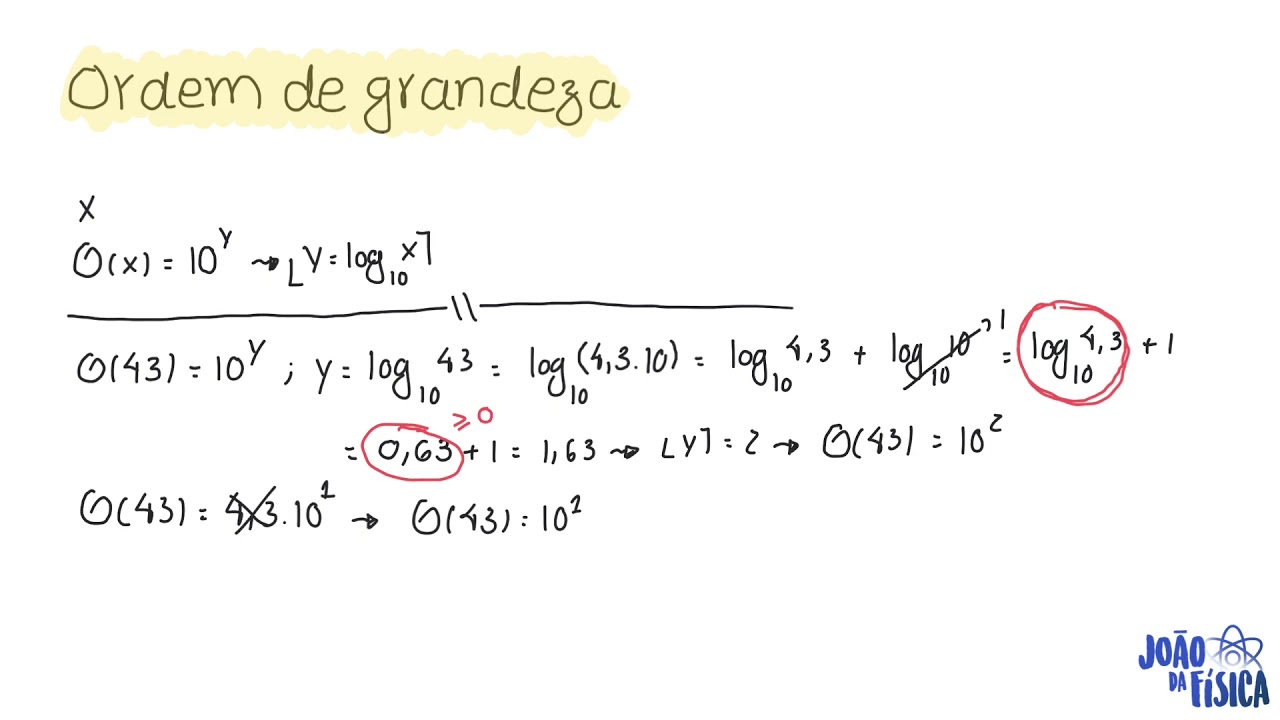 Ordem de grandeza
x
O(x) = 10^y ⇝ ⌊y = log₁₀ x⌉
O(43) = 10^y ; y = log₁₀ 43 = log₁₀ (4,3.10) = log₁₀ 4,3 + log₁₀ 10 ↗1 = log₁₀ 4,3 + 1
≥ 0
= 0,63 + 1 = 1,63 ⇝ ⌊y⌉ = 2 → O(43) = 10²
O(43) = 4,3.10¹ → O(43) = 10¹
JOÃO
DA FÍSICA